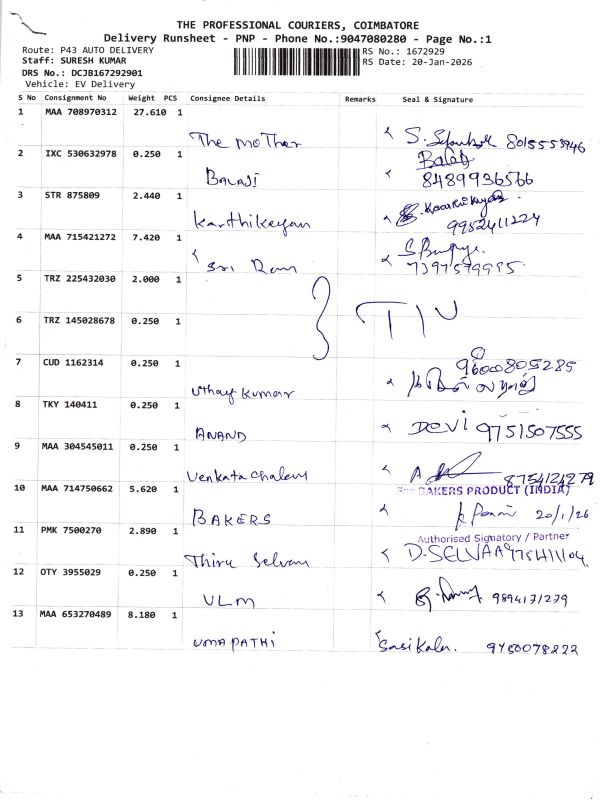 THE PROFESSIONAL COURIERS, COIMBATORE
Delivery Runsheet - PNP - Phone No.:9047080280 - Page No.:1
Route: P43 AUTO DELIVERY
RS No.: 1672929
Staff: SURESH KUMAR
RS Date: 20-Jan-2026
DRS No.: DCJB167292901
Vehicle: EV Delivery
S No Consignment No Weight PCS Consignee Details Remarks Seal & Signature
1 MAA 708970312 27.610 1
The Mother 8015553946
2 IXC 530632978 0.250 1
Balaji
BALAJI 8489936566
3 STR 875809 2.440 1
Karthikeyan 9952411224
4 MAA 715421272 7.420 1
Sri Ram 7397579995
5 TRZ 225432030 2.000 1
6 TRZ 145028678 0.250 1
7 CUD 1162314 0.250 1
9600805285
Uthay Kumar
8 TKY 140411 0.250 1
ANAND DEVI 9751507555
9 MAA 304545011 0.250 1
Venkatachalam 8754124279
10 MAA 714750662 5.620 1
BAKERS PRODUCT (INDIA)
BAKERS 20/1/26
11 PMK 7500270 2.890 1
Authorised Signatory / Partner
Thiru Selvan D.SELVAA
12 OTY 3955029 0.250 1
VLM 9894171279
13 MAA 653270489 8.180 1
UMAPATHI Sasikala. 9780078222